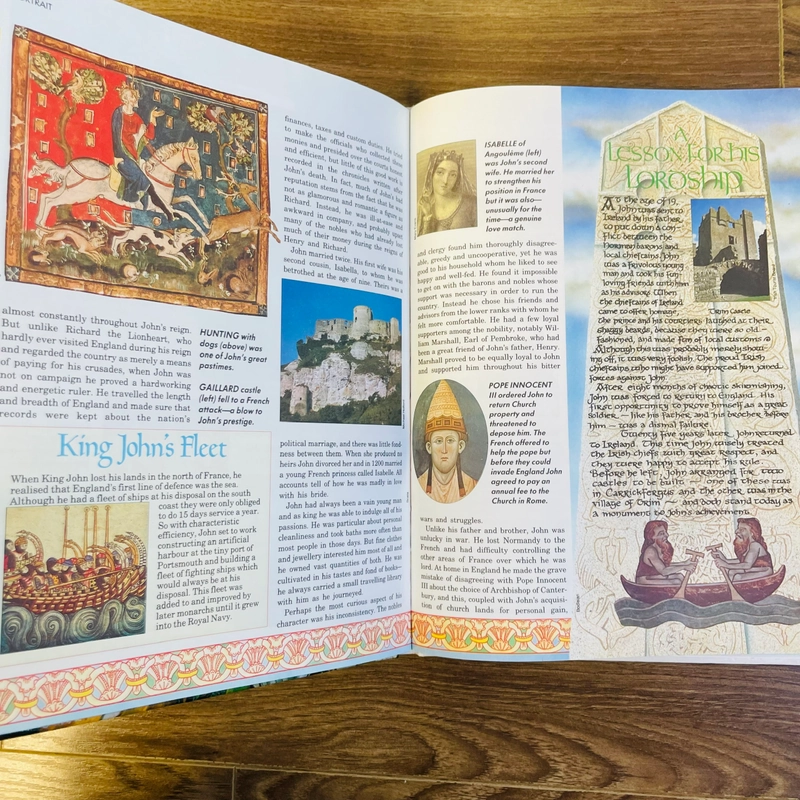 TRAIT
almost constantly throughout John's reign.
But unlike Richard the Lionheart, who
hardly ever visited England during his reign
and regarded the country as merely a means
of paying for his crusades, when John was
not on campaign he proved a hardworking
and energetic ruler. He travelled the length
and breadth of England and made sure that
records were kept about the nation's
HUNTING with
dogs (above) was
one of John's great
pastimes.
GAILLARD castle
(left) fell to a French
attack—a blow to
John's prestige.
King John's Fleet
When King John lost his lands in the north of France, he
realised that England's first line of defence was the sea.
Although he had a fleet of ships at his disposal on the south
coast they were only obliged
to do 15 days service a year.
So with characteristic
efficiency, John set to work
constructing an artificial
harbour at the tiny port of
Portsmouth and building a
fleet of fighting ships which
would always be at his
disposal. This fleet was
added to and improved by
later monarchs until it grew
into the Royal Navy.
finances, taxes and custom duties. He
to make the officials who collected these
monies and presided over the courts honest
and efficient, but little of this good work is
recorded in the chronicles written after
John's death. In fact, much of John's bad
reputation stems from the fact that he was
not as glamorous and romantic a figure as
Richard. Instead, he was ill-at-ease and
awkward in company, and probably
many of the nobles who had already lost
much of their money during the reigns of
Henry and Richard.
John married twice. His first wife was his
second cousin, Isabella, to whom he was
betrothed at the age of nine. Theirs was a
political marriage, and there was little fond-
ness between them. When she produced no
heirs John divorced her and in 1200 married
a young French princess called Isabelle. All
accounts tell of how he was madly in love
with his bride.
John had always been a vain young man
and as king he was able to indulge all of his
passions. He was particular about personal
cleanliness and took baths more often than
most people in those days. But fine clothes
and jewellery interested him most of all and
he owned vast quantities of both. He was
cultivated in his tastes and fond of books—
he always carried a small travelling library
with him as he journeyed.
Perhaps the most curious aspect of his
character was his inconsistency. The nobles
ISABELLE of
Angoulême (left)
was John's second
wife. He married her
to strengthen his
position in France
but it was also—
unusually for the
time—a genuine
love match.
and clergy found him thoroughly disagree-
able, greedy and uncooperative, yet he was
good to his household whom he liked to see
happy and well-fed. He found it impossible
to get on with the barons and nobles whose
support was necessary in order to run the
country. Instead he chose his friends and
advisors from the lower ranks with whom he
felt more comfortable. He had a few loyal
supporters among the nobility, notably Wil-
liam Marshall, Earl of Pembroke, who had
been a great friend of John's father, Henry.
Marshall proved to be equally loyal to John
and supported him throughout his bitter
POPE INNOCENT
III ordered John to
return Church
property and
threatened to
depose him. The
French offered to
help the pope but
before they could
invade England John
agreed to pay an
annual fee to the
Church in Rome.
wars and struggles.
Unlike his father and brother, John was
unlucky in war. He lost Normandy to the
French and had difficulty controlling the
other areas of France over which he was
lord. At home in England he made the grave
mistake of disagreeing with Pope Innocent
III about the choice of Archbishop of Canter-
bury, and this, coupled with John's acquisi-
tion of church lands for personal gain,
A
Lesson For His
Lordship
At the age of 19,
John was sent to
Ireland by his father
to put down a con-
flict between the
Norman barons and
local chieftains. John
was a frivolous young
man and took his fun
loving friends with him
as his advisors. When
the chieftains of Ireland
came to offer homage,
Trim Castle
the prince and his courtiers laughed at their
shaggy beards, because they were so old-
fashioned, and made fun of local customs.
Although this was probably merely show-
ing off, it was very foolish. The proud Irish
chieftains who might have supported him joined
forces against John.
After eight months of chaotic skirmishing,
John was forced to return to England. His
first opportunity to prove himself as a great
soldier — like his father and his brother before
him — was a dismal failure.
Twenty five years later, John returned
to Ireland. This time John wisely treated
the Irish chiefs with great respect, and
they were happy to accept his rule.
Before he left, John arranged for two
castles to be built — one of these was
in Carrickfergus and the other was in the
village of Trim — and both stand today as
a monument to John's achievement.